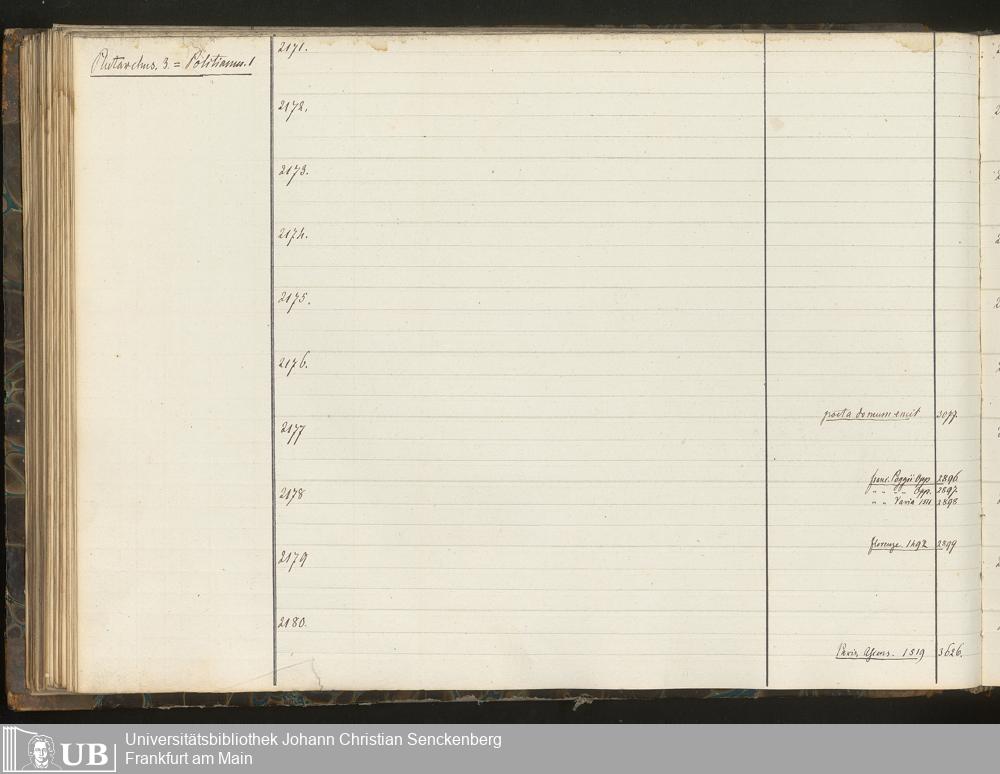 Plutarchus. 3. = Politianus. 1
2171.
2172.
2173.
2174.
2175.
2176.
poeta domum emit 3077.
2177
franc. Poggii Opp. 2896
" " " " Opp. 2897.
2178
" " Varia 1511. 2898
Florenz. 1492 2899
2179
2180.
Paris, Ascens. 1519 3626.
UB
Universitätsbibliothek Johann Christian Senckenberg
Frankfurt am Main